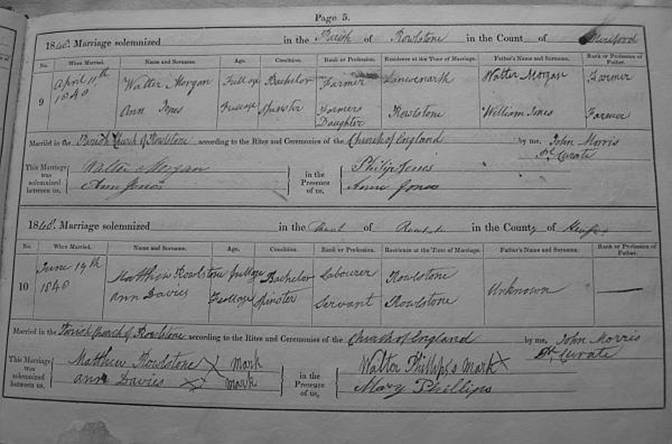 Page 5.
1840. Marriage solemnized in the Parish of Rowlstone in the County of Hereford
No. When Married. Name and Surname. Age. Condition. Rank or Profession. Residence at the Time of Marriage. Father's Name and Surname. Rank or Profession of Father.
9 April 11th 1840 Walter Morgan Full age Bachelor Farmer Lanwenarth Walter Morgan Farmer
Ann Jones Full age Spinster Farmers Daughter Rowlstone William Jones Farmer
Married in the Parish Church of Rowlstone according to the Rites and Ceremonies of the Church of England by me, John Morris
Curate
This Marriage was solemnized between us, Walter Morgan Ann Jones in the Presence of us, Philip Jones Anne Jones
1840. Marriage solemnized in the of in the County of
No. When Married. Name and Surname. Age. Condition. Rank or Profession. Residence at the Time of Marriage. Father's Name and Surname. Rank or Profession of Father.
10 June 19th 1840 Matthew Rowlstone full age Bachelor Labourer Rowlstone Unknown
Ann Davies Full age Spinster Servant Rowlstone
Married in the Parish Church of Rowlstone according to the Rites and Ceremonies of the Church of England by me, John Morris
Curate
This Marriage was solemnized between us, Matthew Rowlstone X mark ann Davies X mark in the Presence of us, Walter Phillips's mark X Mary Phillips